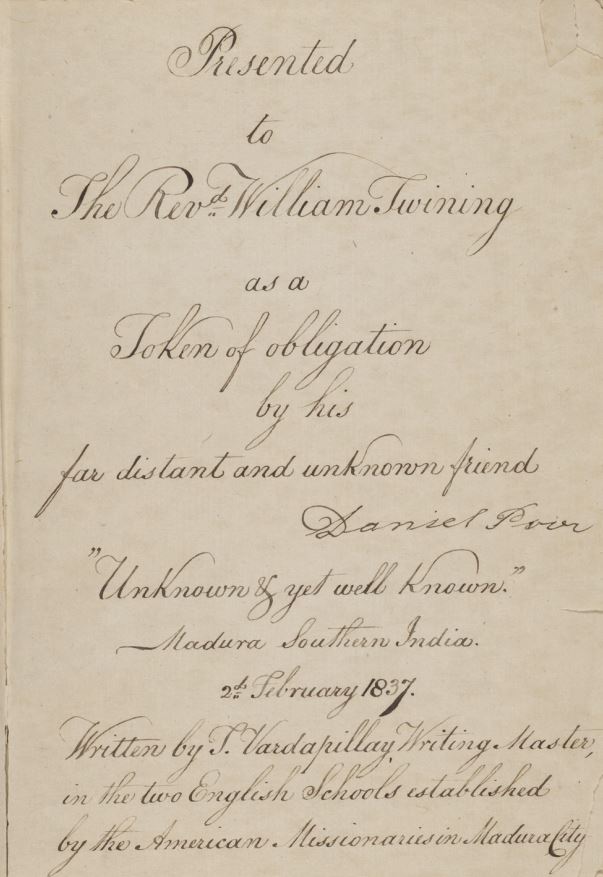 Presented
to
The Revd. William Twining
as a
Token of obligation
by his
far distant and unknown friend
Daniel Poor
"Unknown & yet well known."
—Madura Southern India.
2d. February 1837.
Written by T. Vardapillay, Writing Master,
in the two English Schools established
by the American Missionaries in Madura City